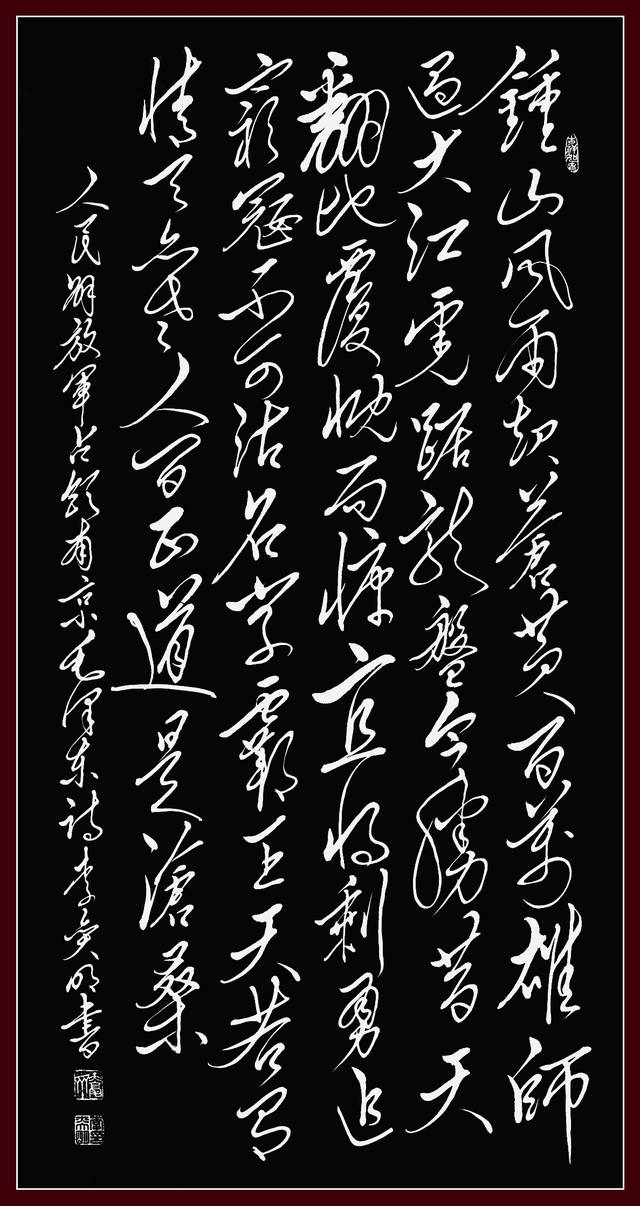 鍾山風雨起蒼黄百萬雄師
過大江虎踞龍盤今勝昔天
翻地覆慨而慷宜将剩勇追
窮寇不可沽名学霸王天若有
情天亦老人间正道是滄桑
人民解放軍占領南京毛泽东詩李明書